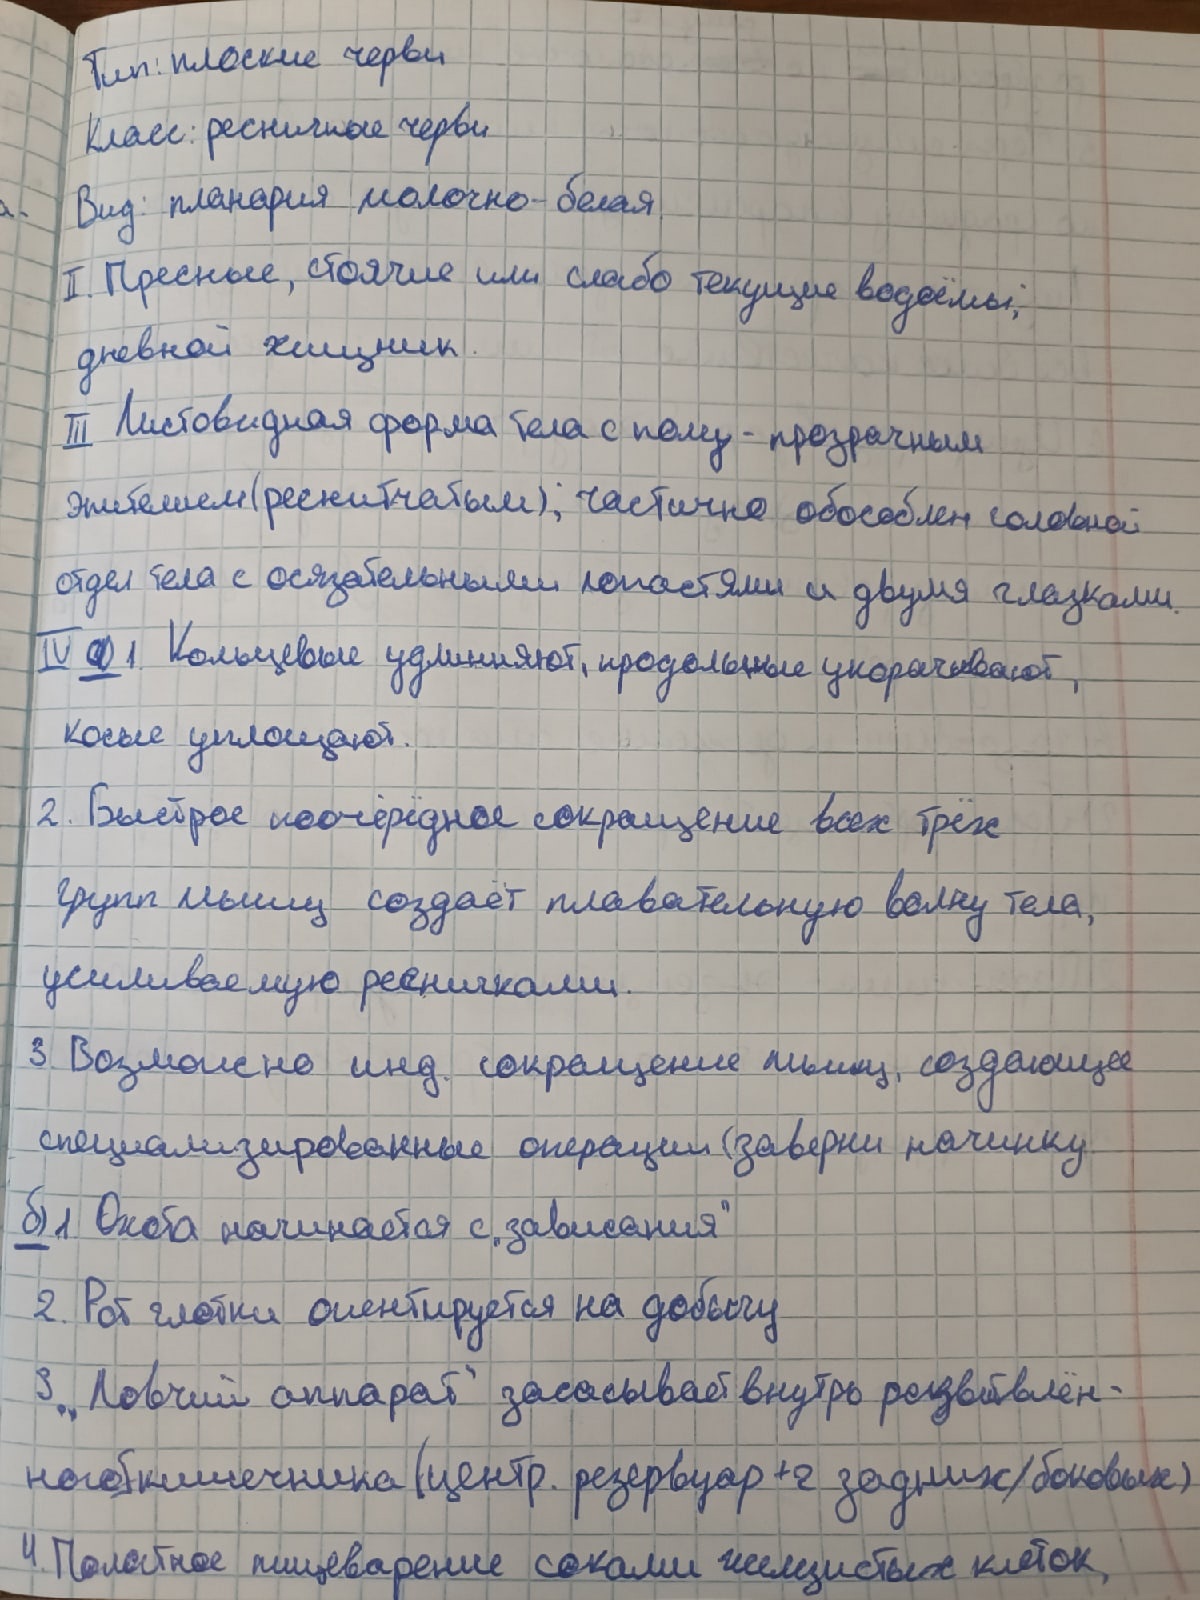 Тип: плоские черви
Класс: ресничные черви
а.
Вид: планария молочно-белая
II. Пресные, стоячие или слабо текущие водоёмы;
дневной хищник.
III Листовидная форма тела с полу-прозрачным
эпителием (реснитчатым); частично обособлен головной
отдел тела с осязательными лопастями и двумя глазками.
IV а) 1. Кольцевые удлиняют, продольные укорачивают,
косые уплощают.
2. Быстрое поочёрёдное сокращение всех трёх
групп мышц создаёт плавательную волну тела,
усиливаемую ресничками.
3. Возможно инд. сокращение мышц, создающее
специализированные операции (заверни начинку
б) 1 Охота начинается с „зависания"
2. Рот глотки оиентируется на добычу
3. „Ловчий аппарат" засасывает внутрь разветвлён-
ного кишечника (центр. резервуар + 2 задних/боковых)
4. Полостное пищеварение соками железистых клеток,